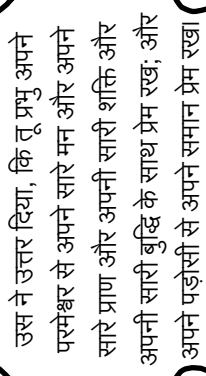 उस ने उत्तर दिया, कि तू प्रभु अपने
परमेश्वर से अपने सारे मन और अपने
सारे प्राण और अपनी सारी शक्ति और
अपनी सारी बुद्धि के साथ प्रेम रख; और
अपने पड़ोसी से अपने समान प्रेम रख।